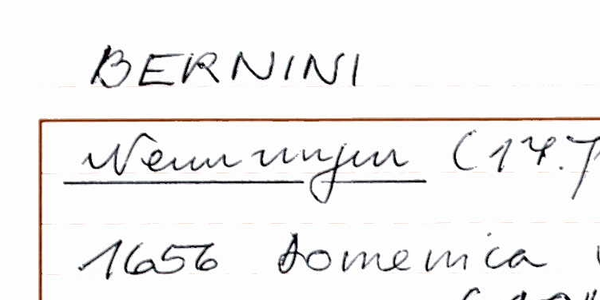 BERNINI
Nennungen (17.7
1656 Domenica